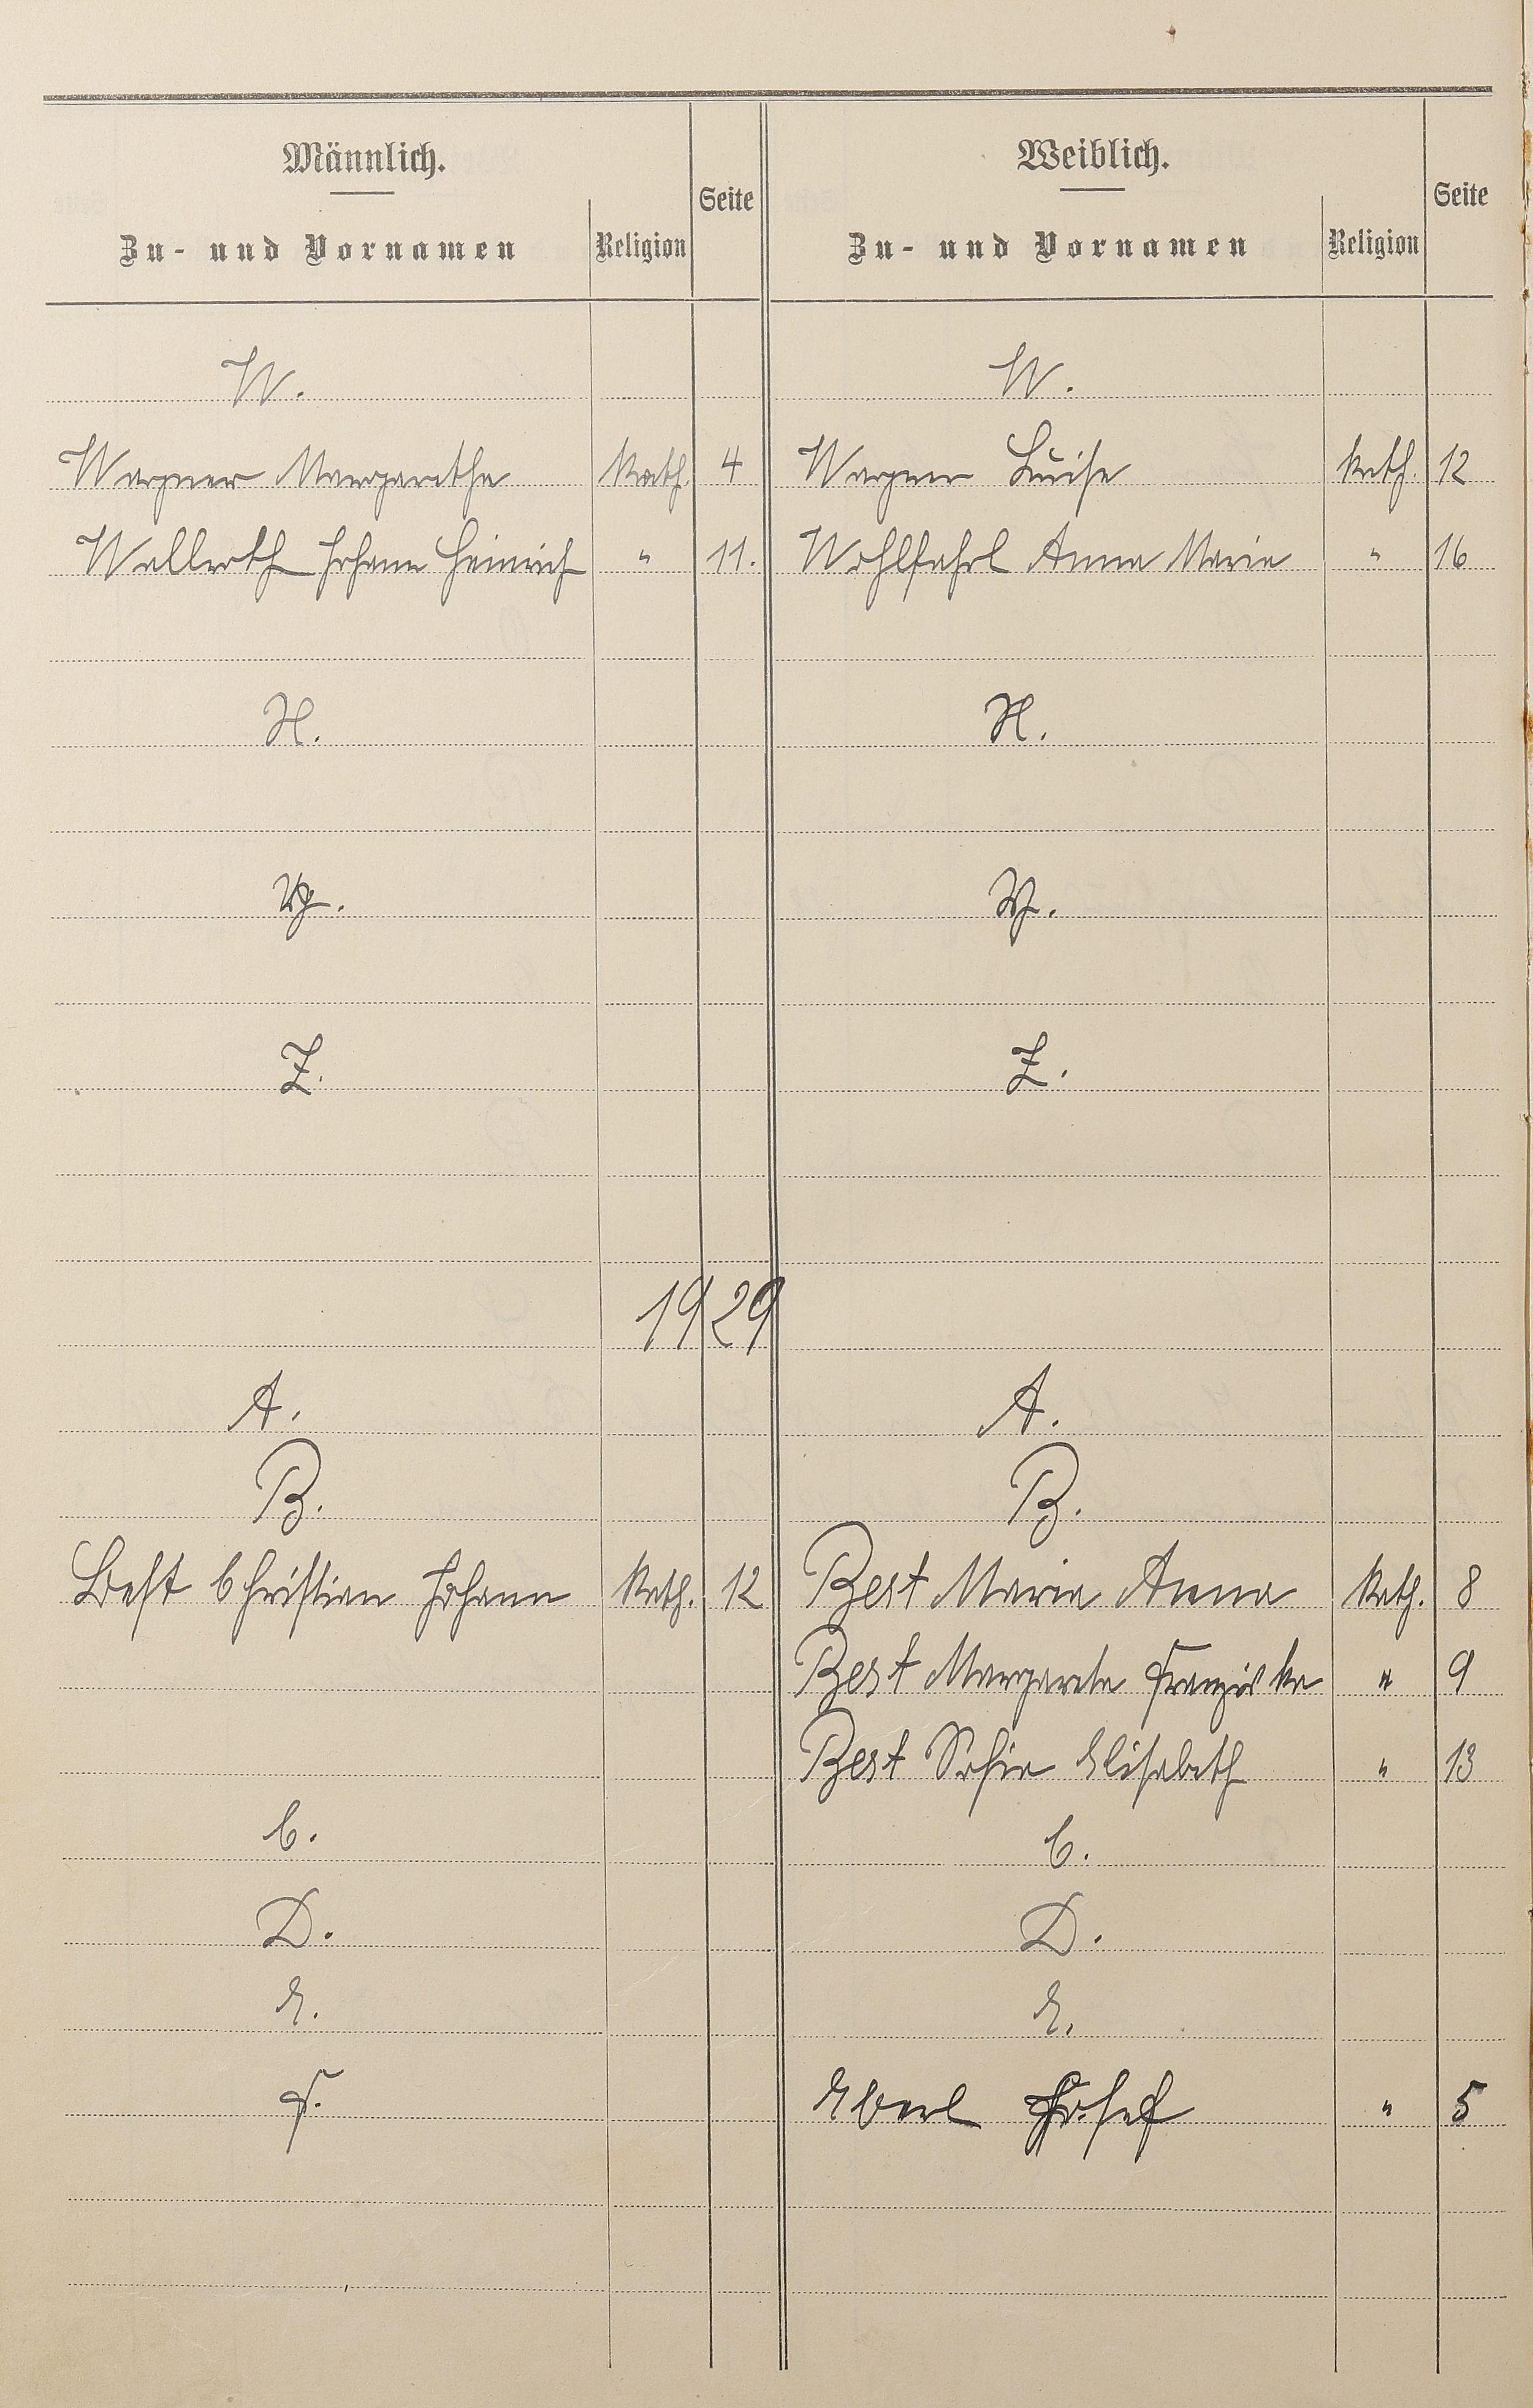 Männlich.
Zu- und Vornamen Religion Seite
Weiblich.
Zu- und Vornamen Religion Seite
W. W.
Wagner Margaretha Kath. 4 Wagner Luise Kath. 12
Wallerath Johann Heinrich " 11. Wohlfahrt Anna Maria " 16
X. X.
Y. Y.
Z. Z.
1929
A. A.
B. B.
Best Christian Johann Kath. 12 Best Maria Anna Kath. 8
Best Margareta Franziska " 9
Best Sofia Elisabeth " 13
C. C.
D. D.
E. E.
F. Eberl Josef " 5